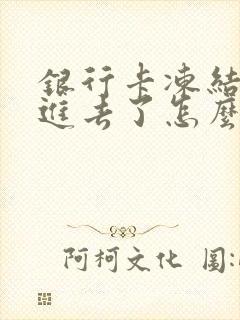 銀行卡凍結
進去了怎麼
阿柯文化 圖: